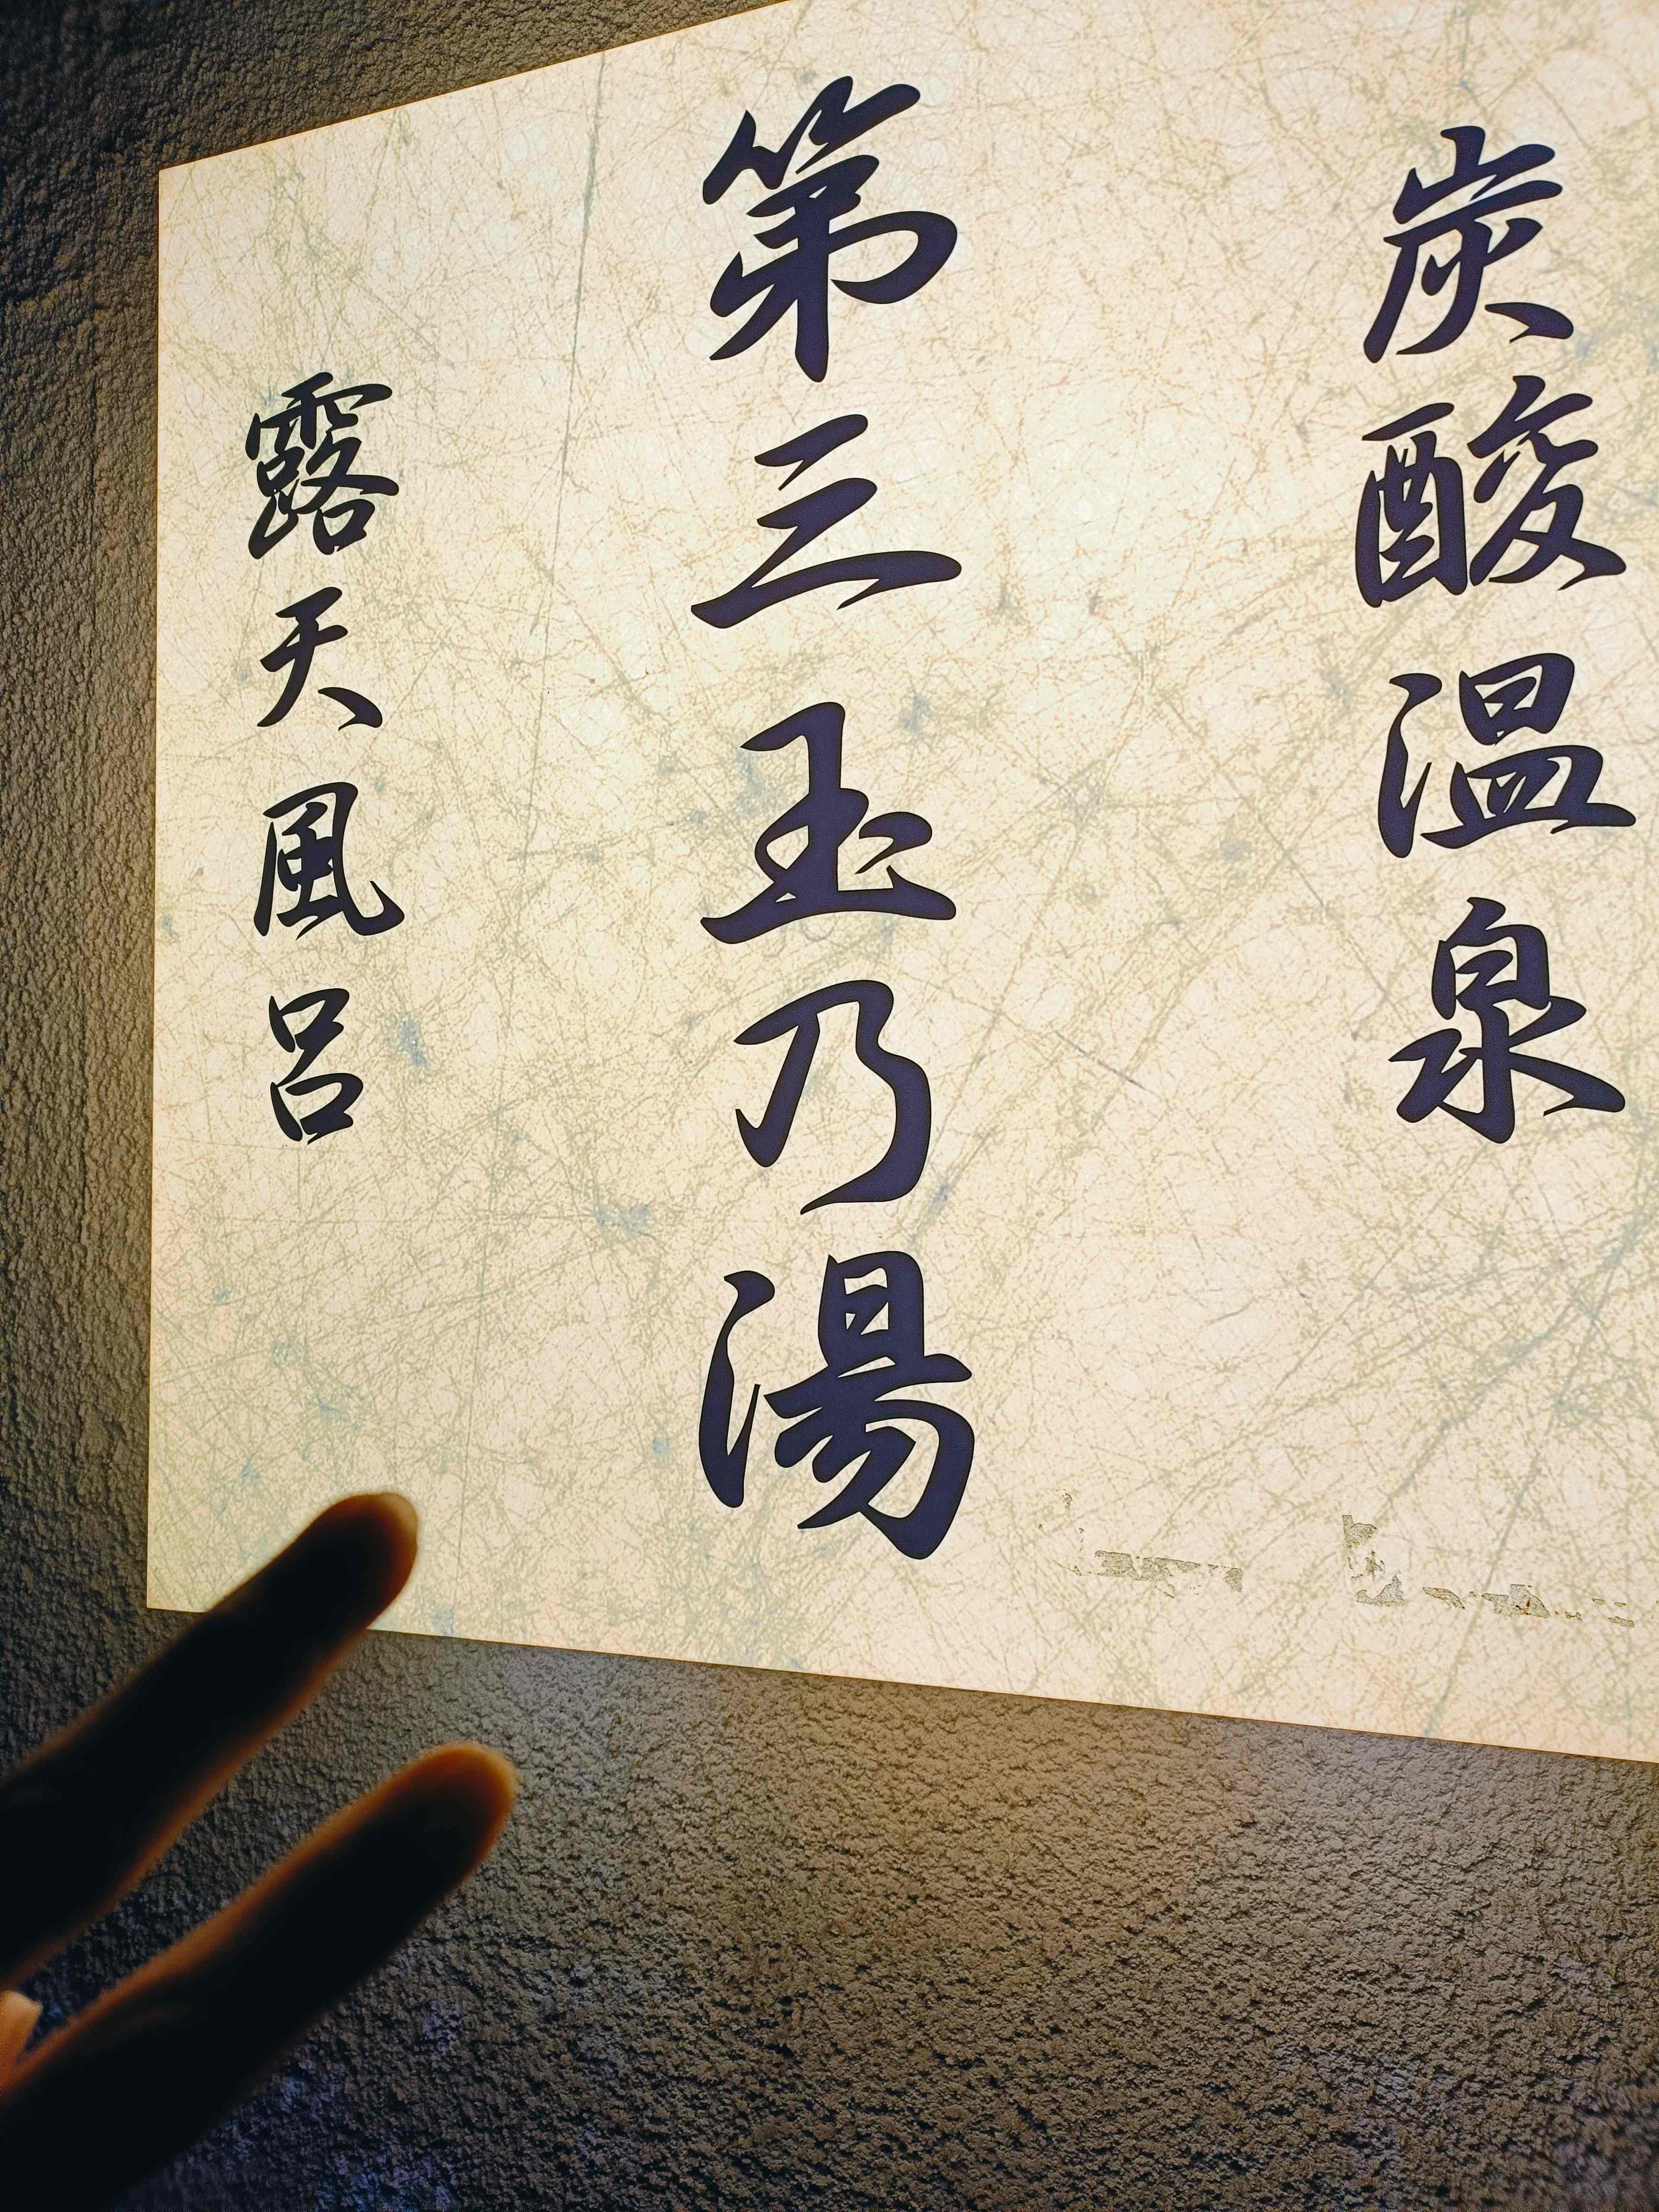 炭酸温泉
第三玉乃湯
露天風呂